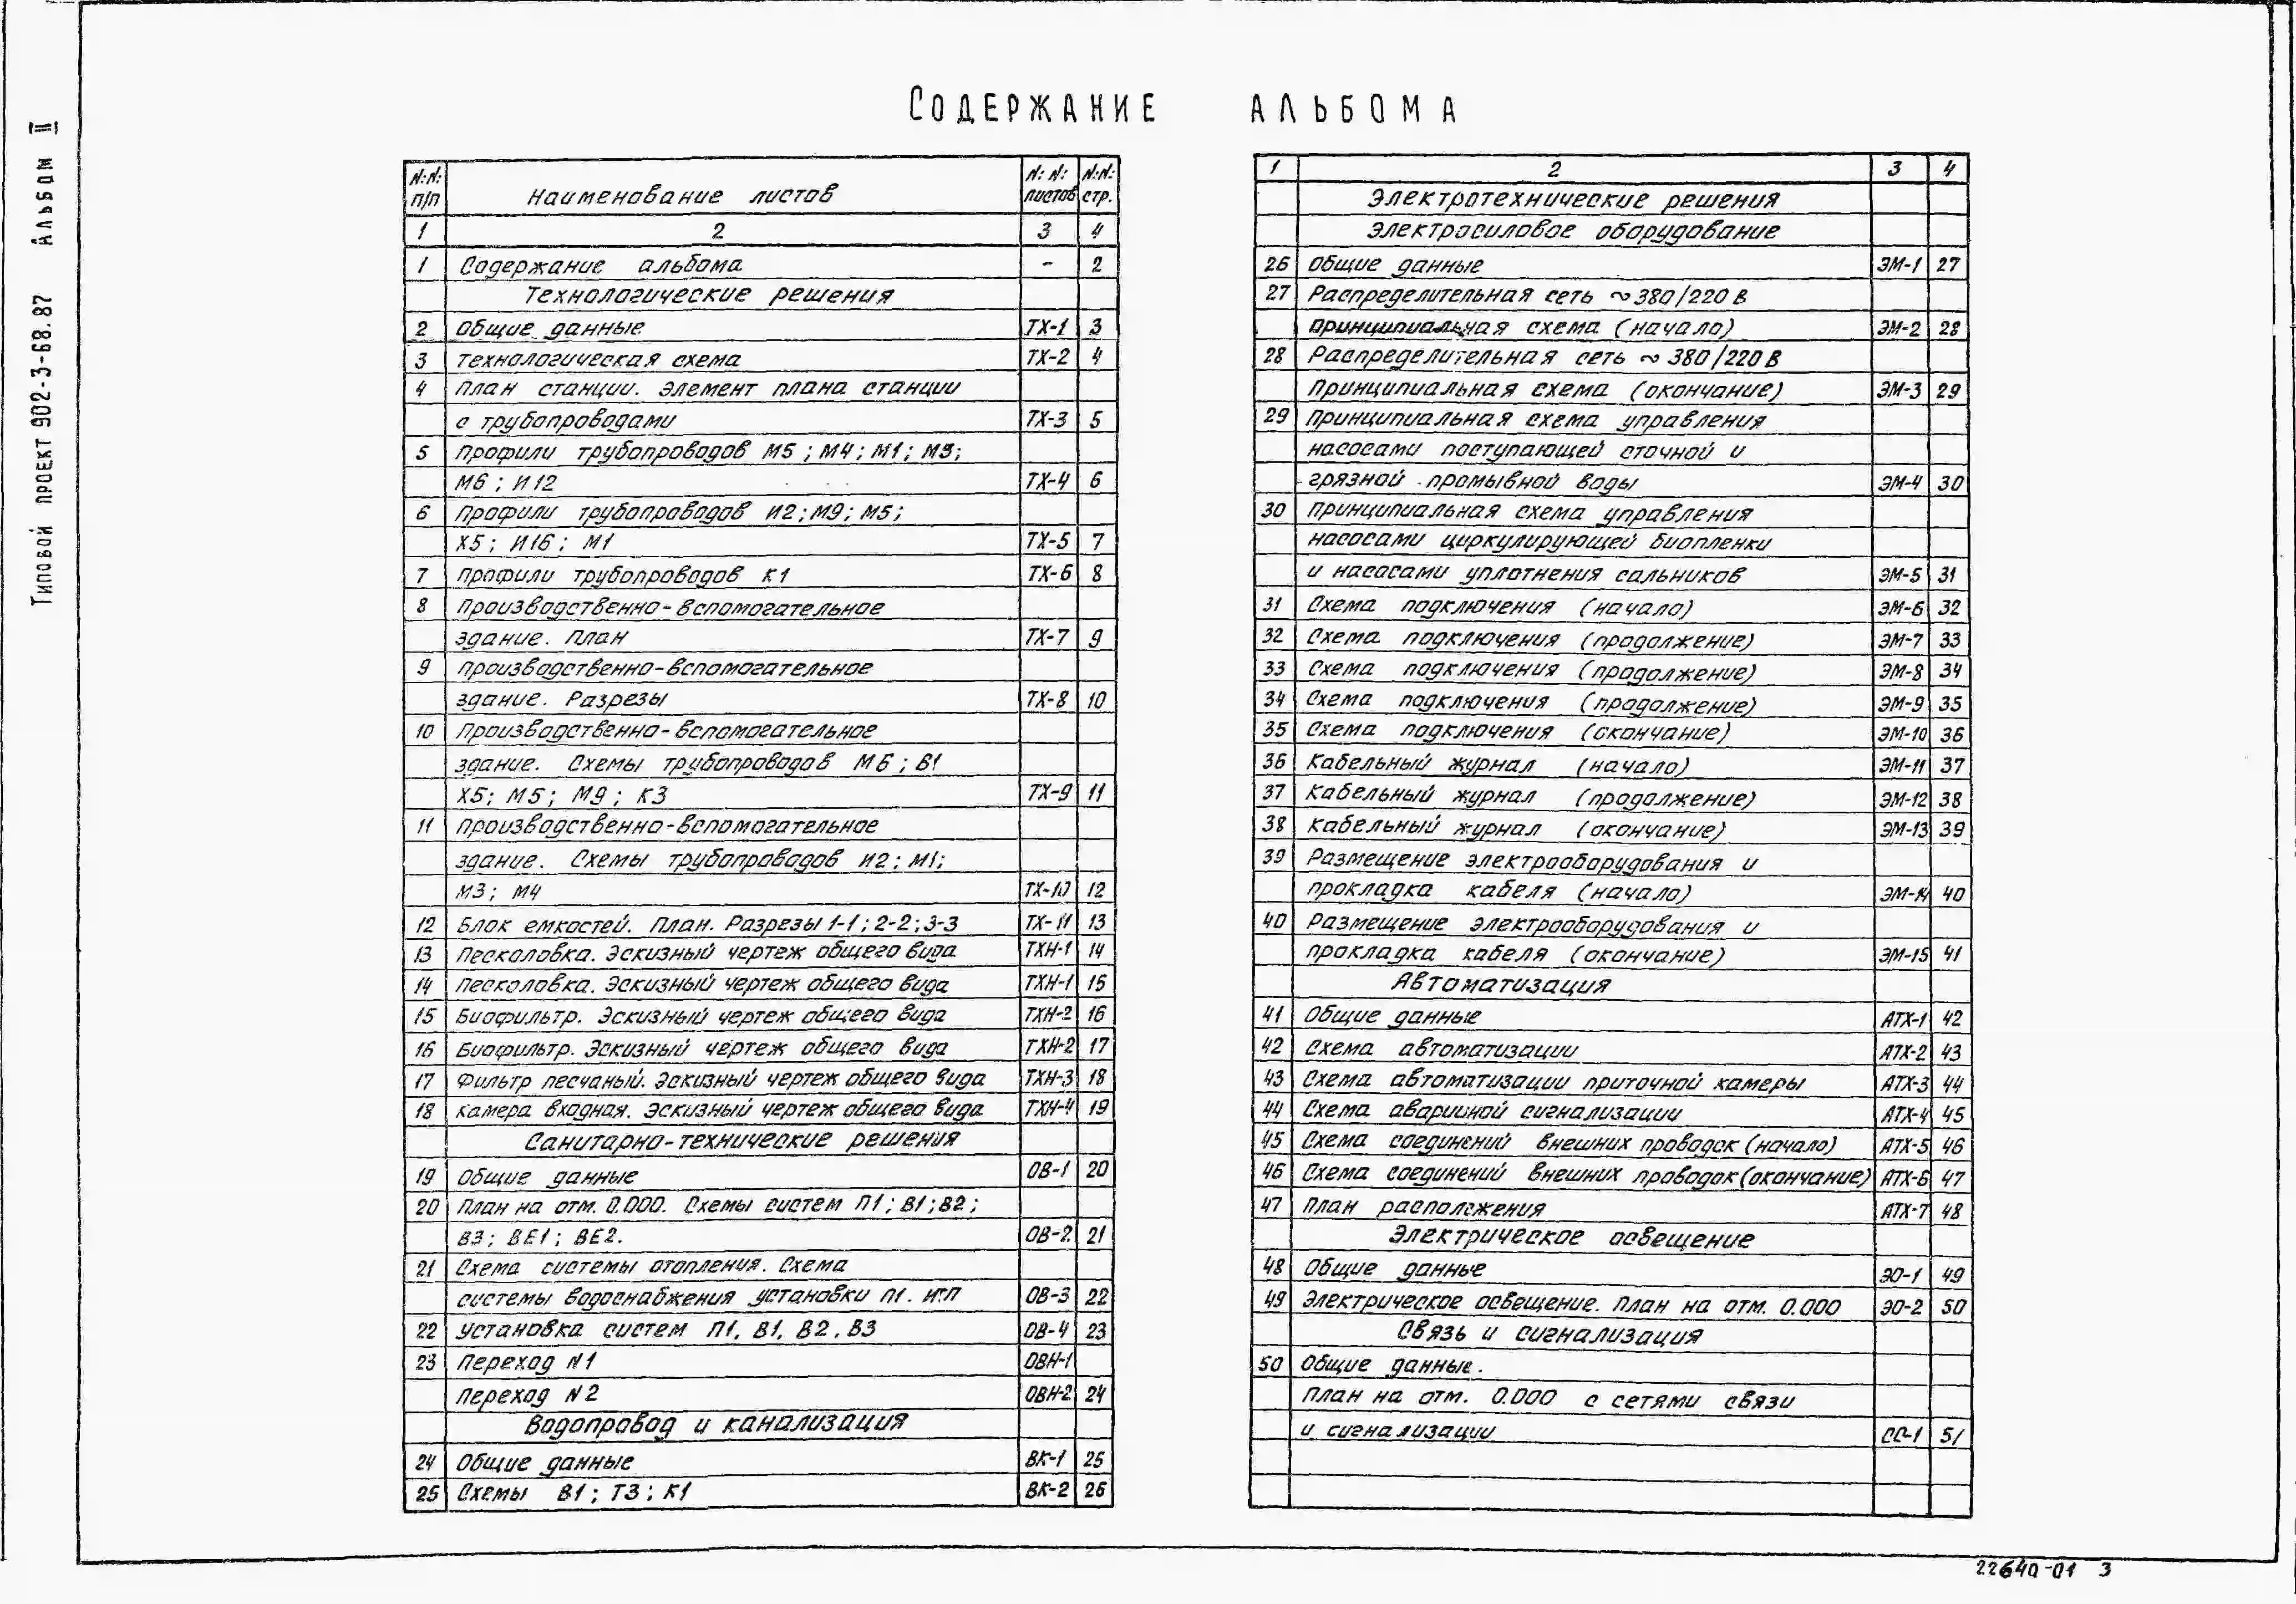 Типовой проект 902-3-68.87 Альбом II
Содержание альбома
N:N: п/п Наименование листов N: N: листов N:N: стр.
1 2 3 4
1 Содержание альбома - 2
Технологические решения
2 Общие данные ТХ-1 3
3 Технологическая схема ТХ-2 4
4 План станции. Элемент плана станции
с трубопроводами ТХ-3 5
5 Профили трубопроводов М5 ; М4 ; М1 ; М3;
М6 ; И12 ТХ-4 6
6 Профили трубопроводов И2 ; М9 ; М5 ;
Х5 ; И16 ; М1 ТХ-5 7
7 Профили трубопроводов К1 ТХ-6 8
8 Производственно-вспомогательное
здание. План ТХ-7 9
9 Производственно-вспомогательное
здание. Разрезы ТХ-8 10
10 Производственно-вспомогательное
здание. Схемы трубопроводов М6 ; В1
Х5; М5; М9 ; К3 ТХ-9 11
11 Производственно-вспомогательное
здание. Схемы трубопроводов И2 ; М1;
М3 ; М4 ТХ-10 12
12 Блок емкостей. План. Разрезы 1-1 ; 2-2 ; 3-3 ТХ-11 13
13 Песколовка. Эскизный чертеж общего вида ТХН-1 14
14 Песколовка. Эскизный чертеж общего вида ТХН-1 15
15 Биофильтр. Эскизный чертеж общего вида ТХН-2 16
16 Биофильтр. Эскизный чертеж общего вида ТХН-2 17
17 Фильтр песчаный. Эскизный чертеж общего вида ТХН-3 18
18 Камера входная. Эскизный чертеж общего вида ТХН-4 19
Санитарно-технические решения
19 Общие данные ОВ-1 20
20 План на отм. 0.000. Схемы систем П1 ; В1 ; В2 ;
В3 ; ВЕ1 ; ВЕ2. ОВ-2 21
21 Схема системы отопления. Схема
системы водоснабжения установки П1. ИТП ОВ-3 22
22 Установка систем П1, В1, В2, В3 ОВ-4 23
23 Переход N1 ОВН-1
Переход N2 ОВН-2 24
Водопровод и канализация
24 Общие данные ВК-1 25
25 Схемы В1 ; Т3 ; К1 ВК-2 26
1 2 3 4
Электротехнические решения
Электросиловое оборудование
26 Общие данные ЭМ-1 27
27 Распределительная сеть ~380/220 В
принципиальная схема (начало) ЭМ-2 28
28 Распределительная сеть ~380/220 В
принципиальная схема (окончание) ЭМ-3 29
29 Принципиальная схема управления
насосами поступающей сточной и
грязной промывной воды ЭМ-4 30
30 Принципиальная схема управления
насосами циркулирующей биопленки
и насосами уплотнения сальников ЭМ-5 31
31 Схема подключения (начало) ЭМ-6 32
32 Схема подключения (продолжение) ЭМ-7 33
33 Схема подключения (продолжение) ЭМ-8 34
34 Схема подключения (продолжение) ЭМ-9 35
35 Схема подключения (окончание) ЭМ-10 36
36 Кабельный журнал (начало) ЭМ-11 37
37 Кабельный журнал (продолжение) ЭМ-12 38
38 Кабельный журнал (окончание) ЭМ-13 39
39 Размещение электрооборудования и
прокладка кабеля (начало) ЭМ-14 40
40 Размещение электрооборудования и
прокладка кабеля (окончание) ЭМ-15 41
Автоматизация
41 Общие данные АТХ-1 42
42 Схема автоматизации АТХ-2 43
43 Схема автоматизации приточной камеры АТХ-3 44
44 Схема аварийной сигнализации АТХ-4 45
45 Схема соединений внешних проводок (начало) АТХ-5 46
46 Схема соединений внешних проводок (окончание) АТХ-6 47
47 План расположения АТХ-7 48
Электрическое освещение
48 Общие данные ЭО-1 49
49 Электрическое освещение. План на отм. 0.000 ЭО-2 50
Связь и сигнализация
50 Общие данные.
План на отм. 0.000 с сетями связи
и сигнализации СС-1 51
22640-01 3